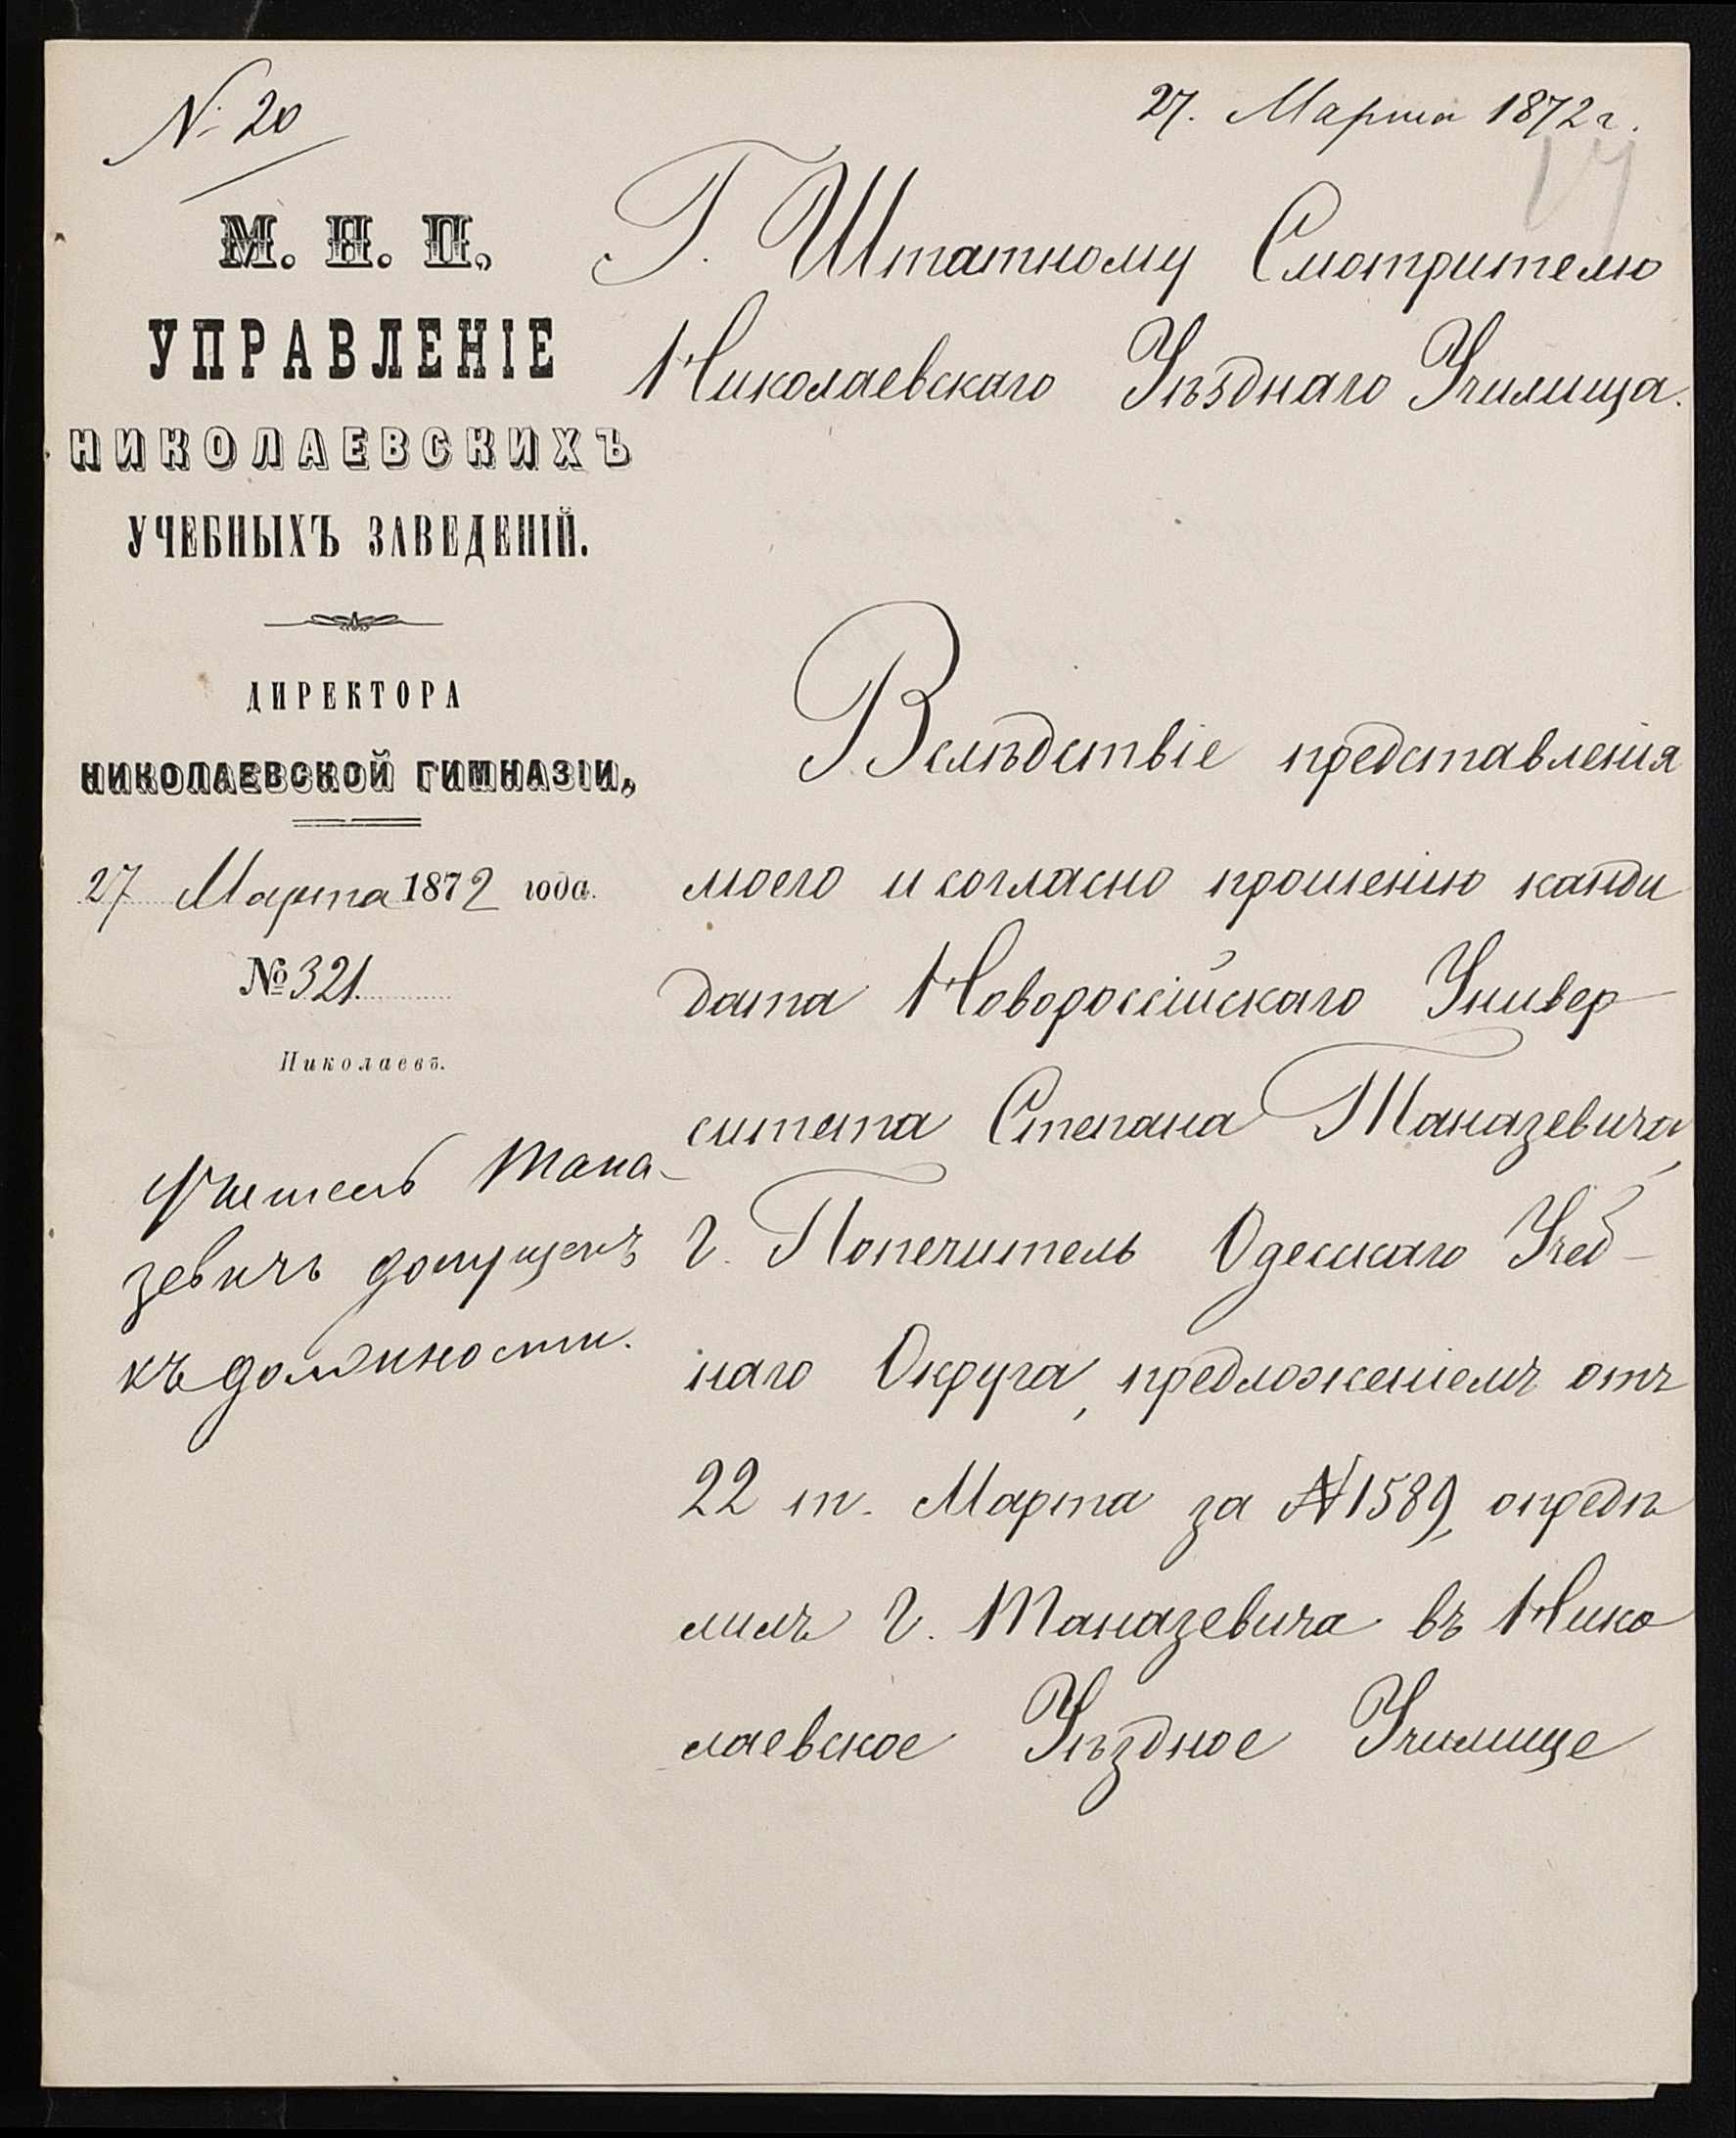 № 20
27. Марта 1872 г.
М. Н. П.
УПРАВЛЕНІЕ
НИКОЛАЕВСКИХЪ
УЧЕБНЫХЪ ЗАВЕДЕНІЙ.
ДИРЕКТОРА
НИКОЛАЕВСКОЙ ГИМНАЗІИ,
27 Марта 1872 года.
№ 321.
Николаевъ.
Учитель Тана-
зевичъ допущенъ
къ должности.
Г. Штатному Смотрителю
Николаевскаго Уѣзднаго Училища.
Вслѣдствіе представленія
моего и согласно прошенію канди
дата Новороссійскаго Универ-
ситета Степана Таназевича,
г. Попечитель Одесскаго Учеб-
наго Округа, предложеніемъ отъ
22 т. Марта за № 1589, опредѣ
лилъ г. Таназевича въ Нико
лаевское Уѣздное Училище